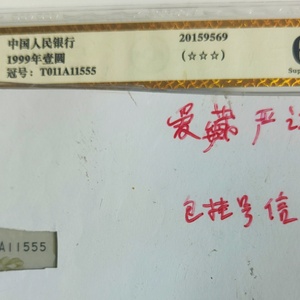 中国人民银行 20159569
1999年壹圆 (☆☆☆)
冠号: T011A11555
爱藏 严
包挂号信
A11555